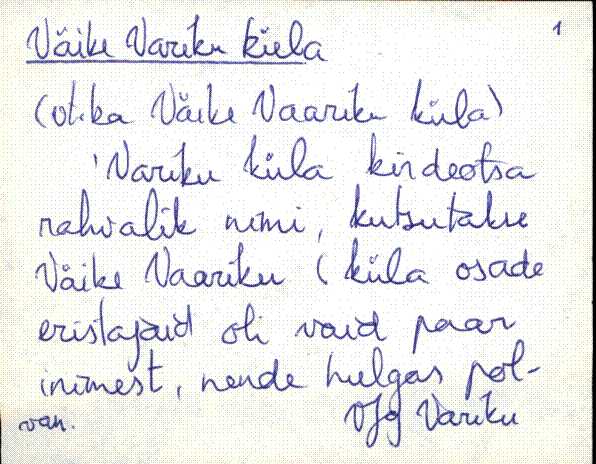 Väike Variku küla
1
(vt. ka Väike Vaariku küla)
Variku küla kirdeotsa
rahvalik nimi, kutsutakse
Väike Vaariku ( küla osade
eristajaid oli vaid paar
inimest, nende hulgas pol-
van. Vig Variku